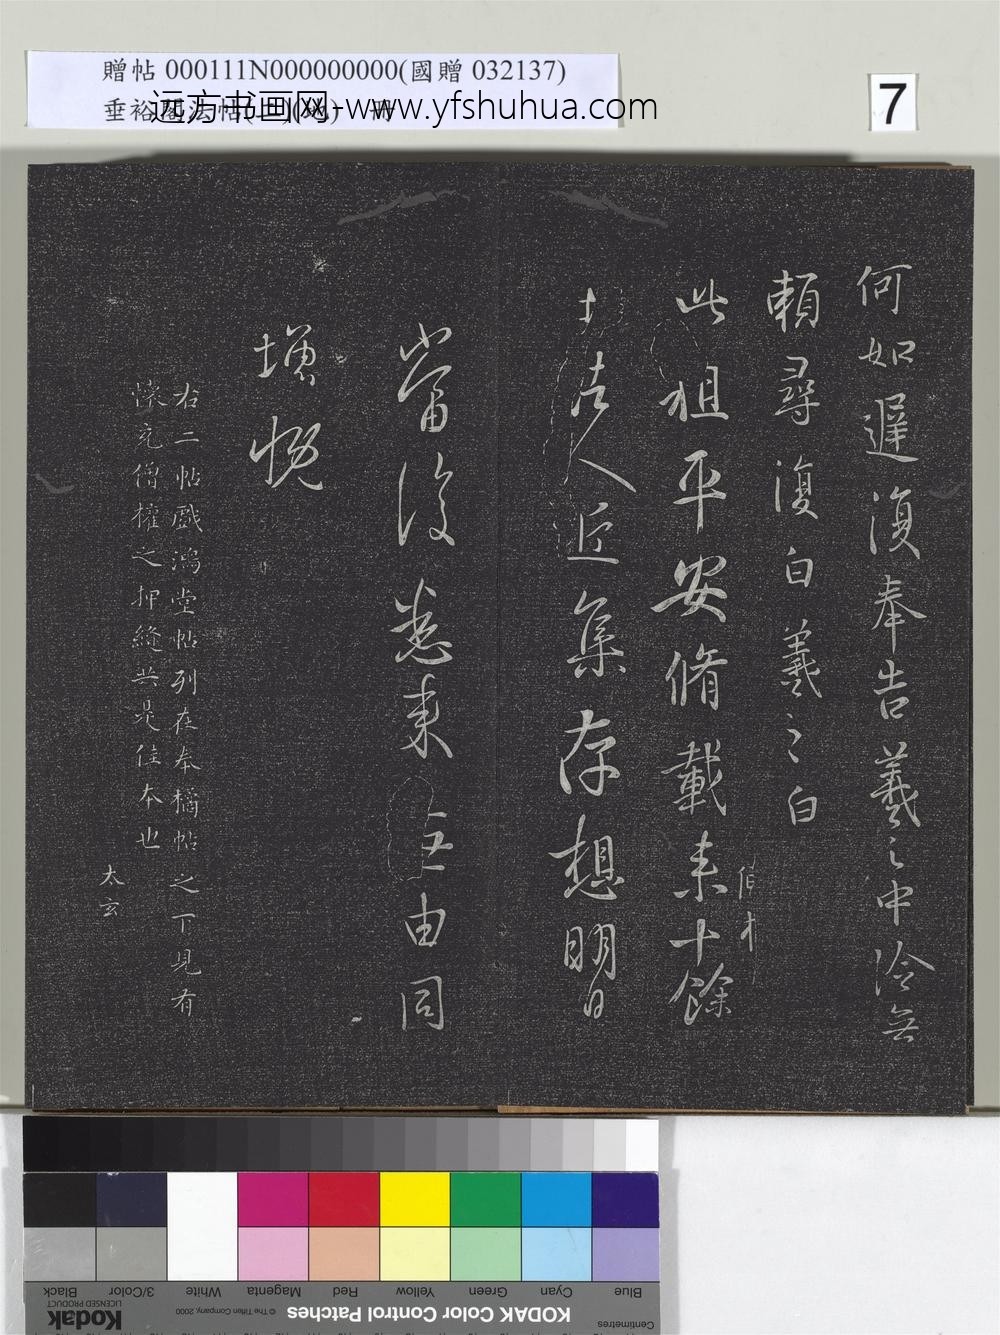 贈帖 000111N000000000(國贈 032137)
垂裕閣法帖
远方书画网-www.yfshuhua.com
7
何如遲復奉告羲之中冷無
賴尋復白羲之白
此粗平安脩載来十餘
人近集存想明日
當復悉来由同
增慨
右二帖戲鴻堂帖列在奉橘帖之下見有
懐充僧權之押縫共是佳本也
太玄
Centimetres
KODAK Color Control Patches
© The Tiffen Company, 2000
Kodak
LICENSED PRODUCT
Blue Cyan Green Yellow Red Magenta White 3/Color Black